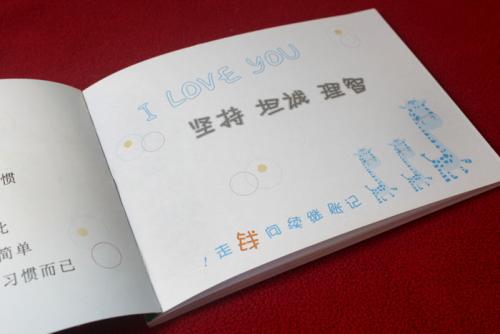 惯
简单
习惯而已
I LOVE YOU
坚持 坦诚 理智
记账继续向钱走!